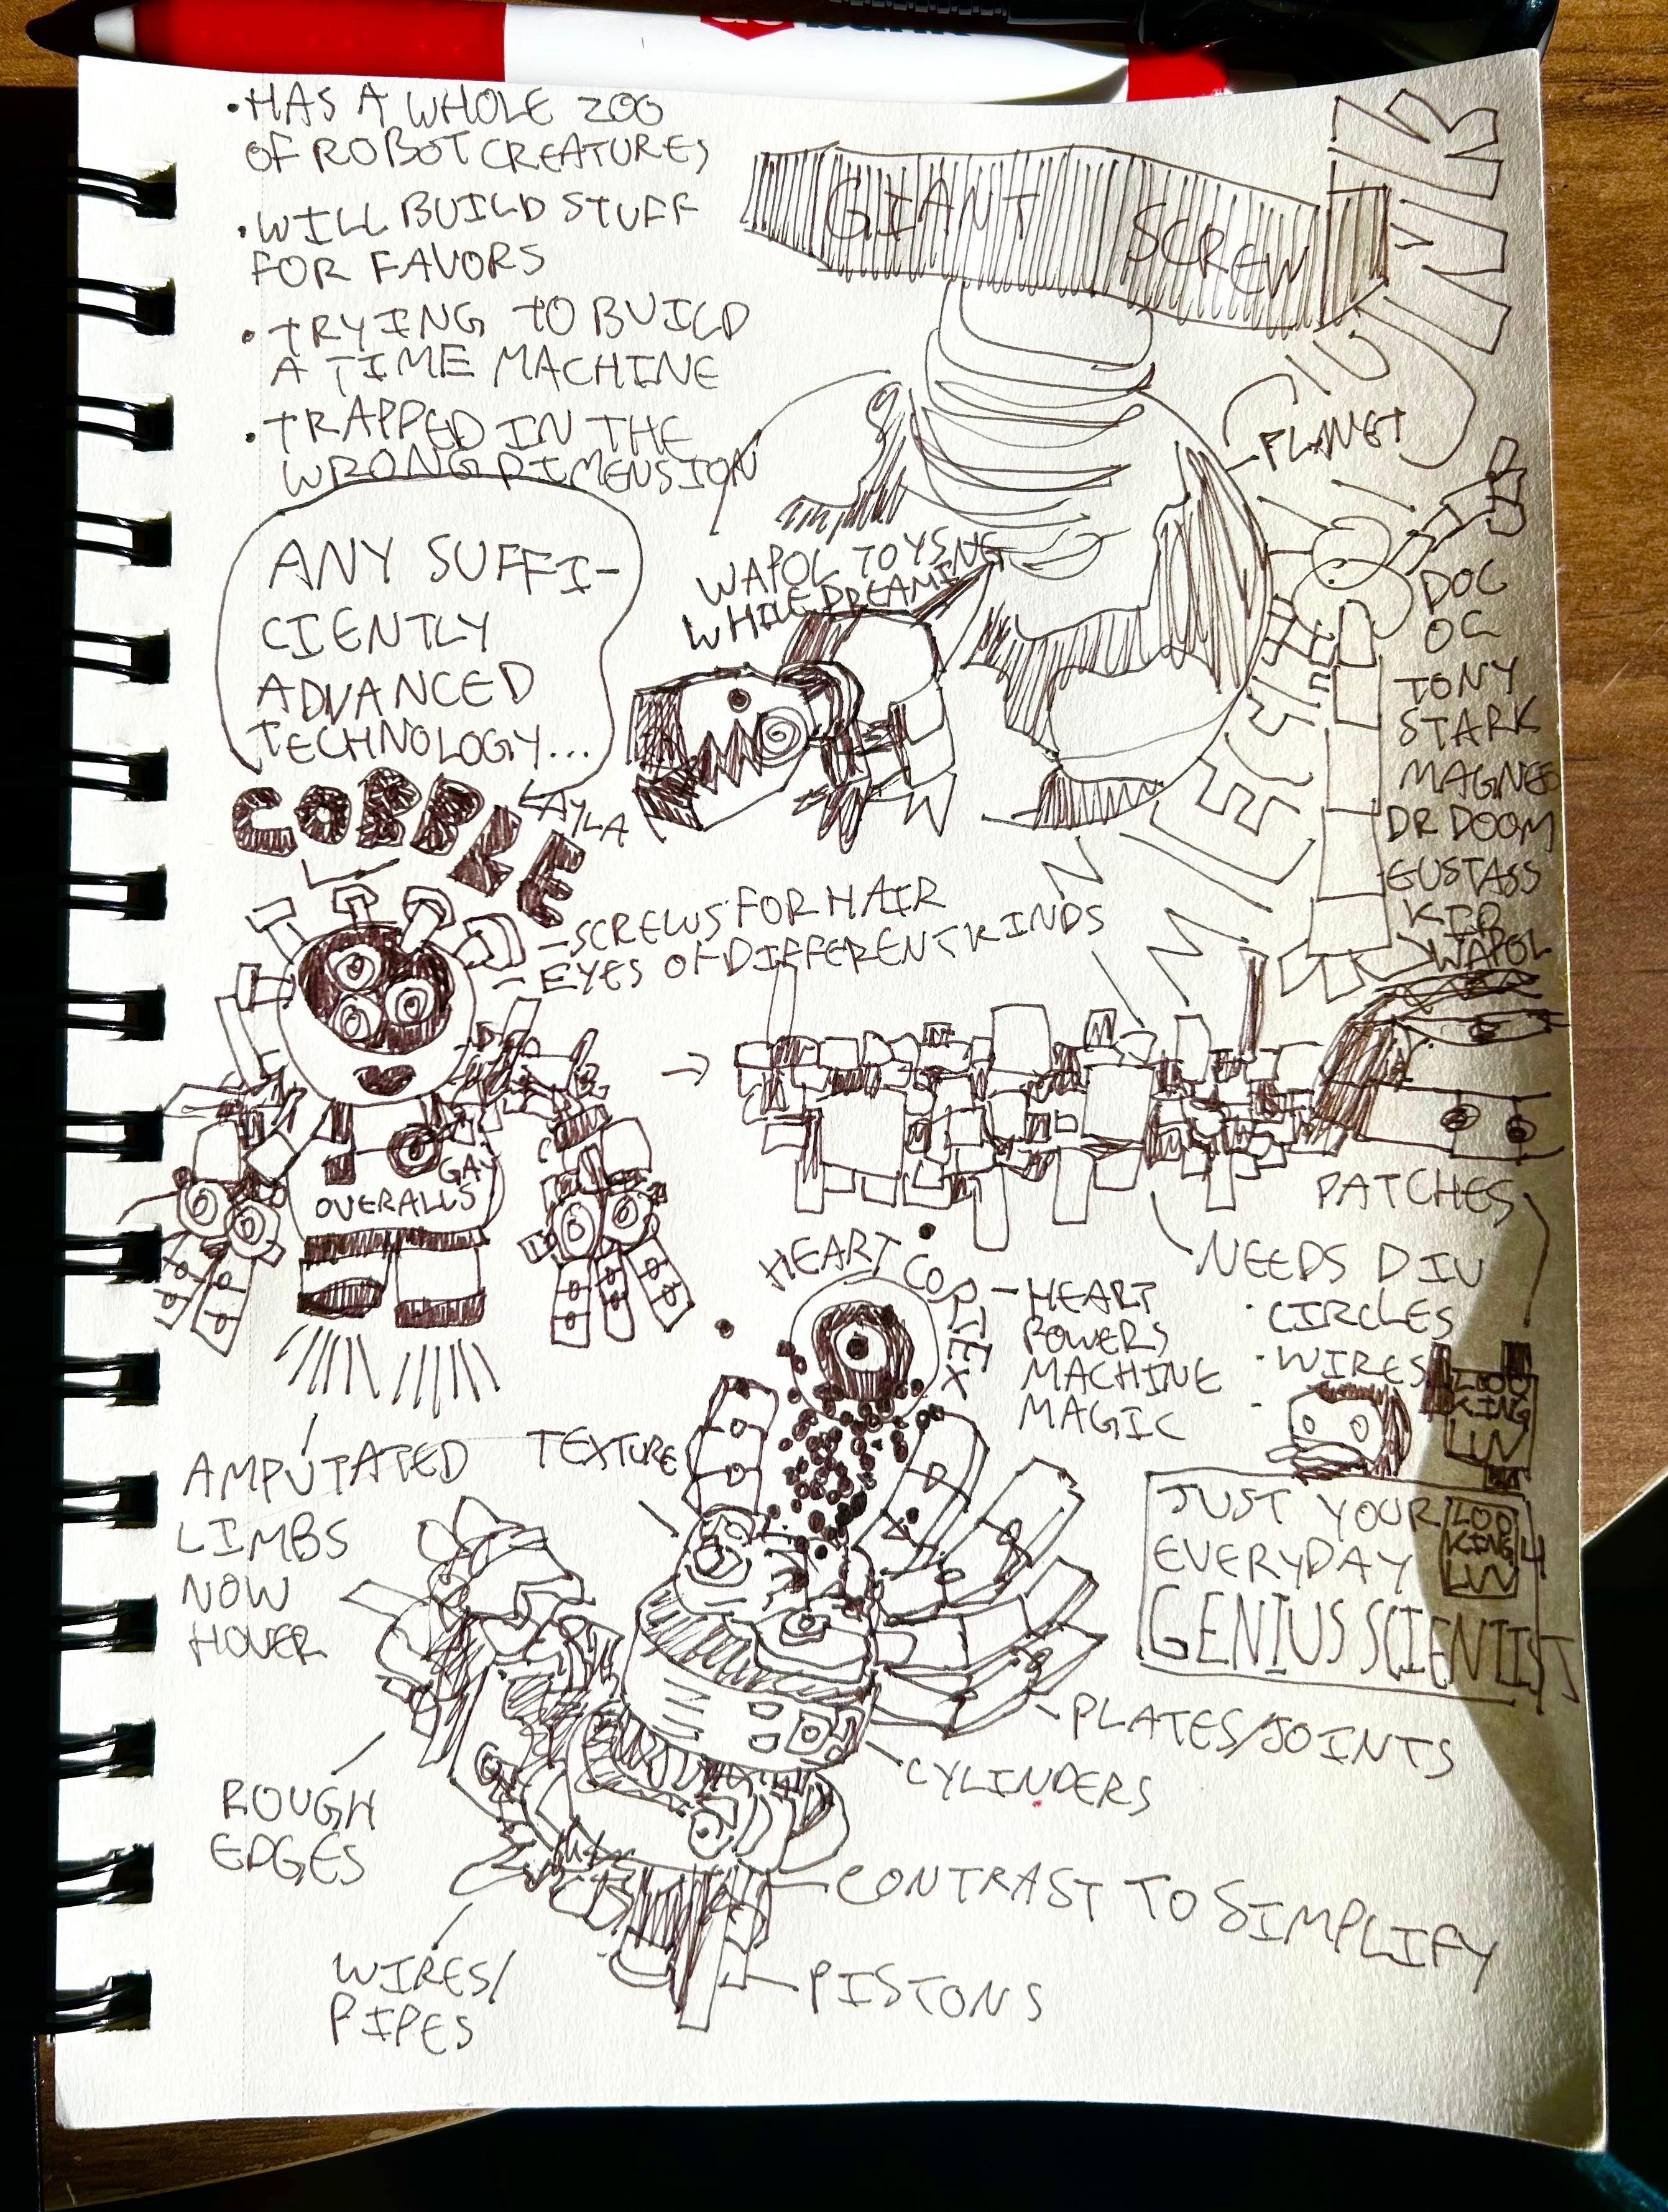 • HAS A WHOLE ZOO
OF ROBOT CREATURES
• WILL BUILD STUFF
FOR FAVORS
• TRYING TO BUILD
A TIME MACHINE
• TRAPPED IN THE
WRONG DIMENSION
GIANT SCREW
JUNK
PLANET
ANY SUFFI-
CIENTLY
ADVANCED
TECHNOLOGY...
WAPOL TOYSNG
WHILE DREAMING
DOC
OC
TONY
STARK
MAGNEO
DR DOOM
GUSTASS
KID
WAPOL
COBBLE
KAYLA
- SCREWS FOR HAIR
- EYES OF DIFFERENT KINDS
GAY
OVERALLS
PATCHES
NEEDS DIV
• CIRCLES
• WIRES
HEART COPLEX
- HEART
POWERS
MACHINE
MAGIC
LOO
KING
LUV
AMPUTATED
LIMBS
NOW
HOVER
TEXTURE
JUST YOUR
EVERYDAY
GENIUS SCIENTIST
LOO
KING 4
LUV
PLATES/JOINTS
CYLINDERS
ROUGH
EDGES
CONTRAST TO SIMPLIFY
WIRES/
PIPES
PISTONS